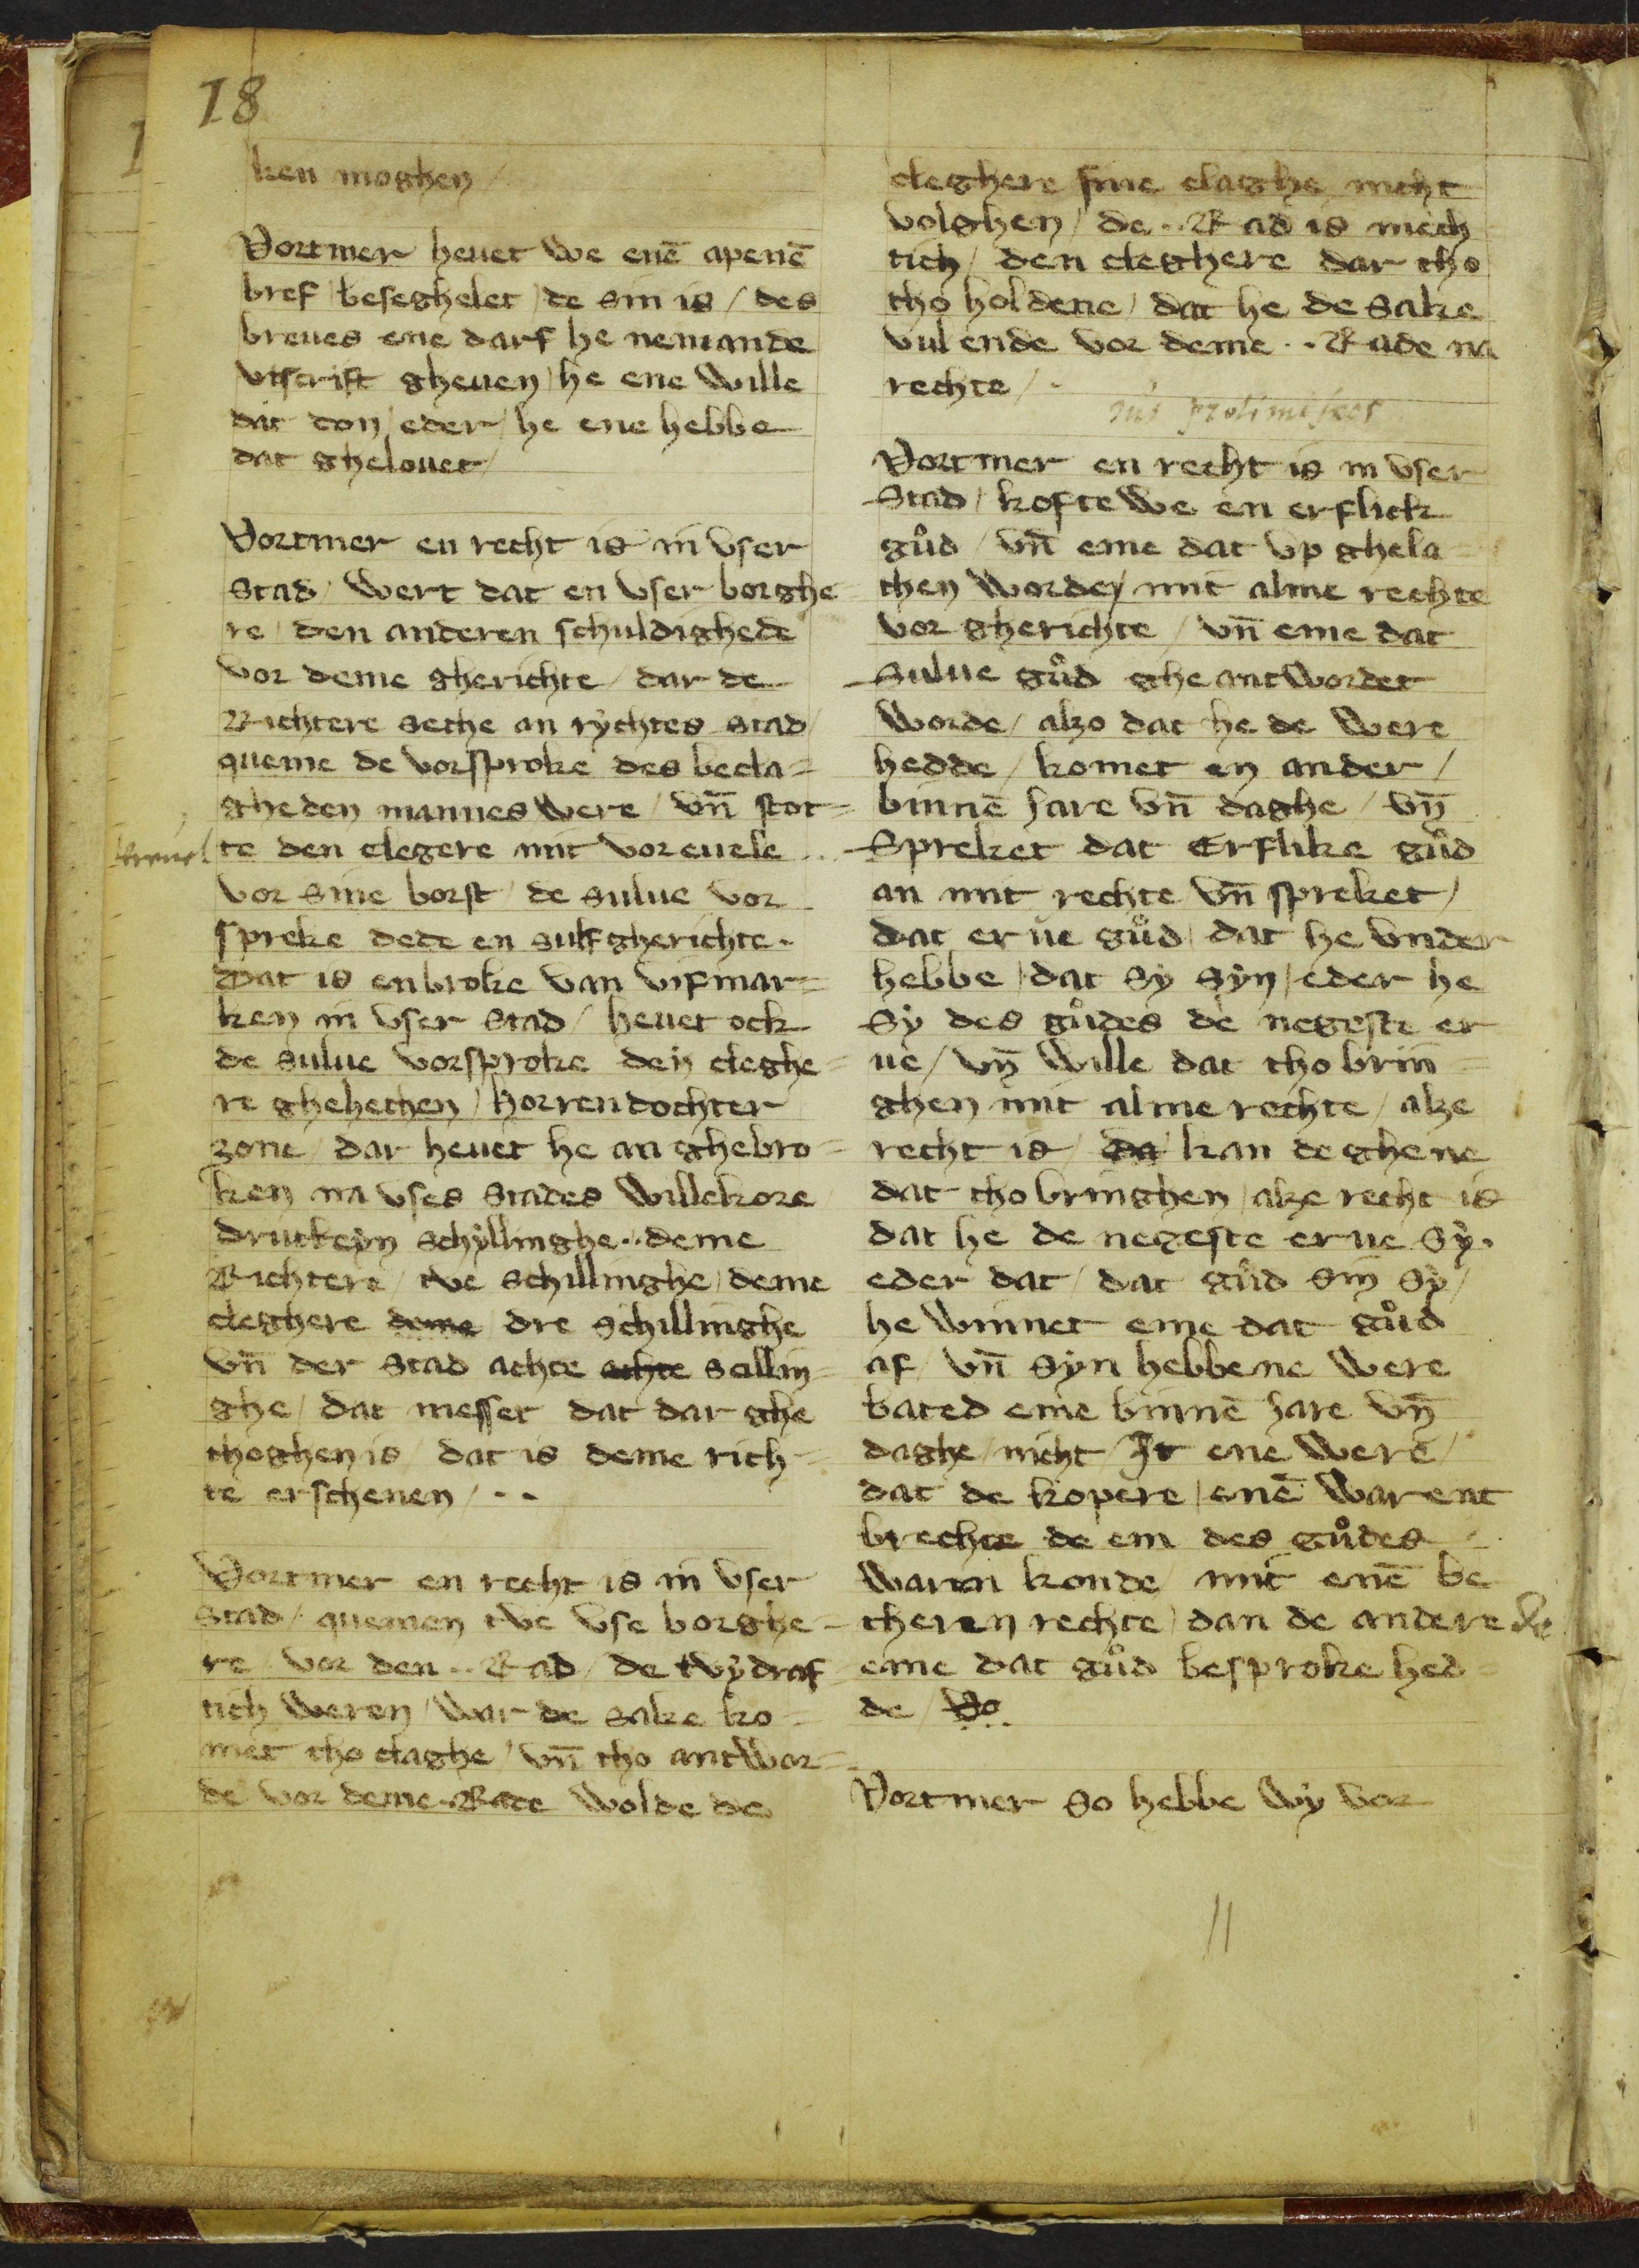 18
ken moghen /
Vortmer heuet we enē apenē
bref / beseghelet / de sin is / des
breues ene darf he nemande
vtscrift gheuen / he ene wille
dat don / eder / he ene hebbe
dat ghelouet /
Vortmer en recht is in vser
Stad / wert dat en vser borghe=
re / den anderen schuldighede
vor deme gherichte / dar de
Richtere sethe an rÿchtes stad /
queme de vorsproke des becla=
gheden mannes were / vn̄ stot=
te den clegere mit voreuele
vor sine borst / de sulue vor
spreke dede en sulfgherichte.
Dat is en broke van vif mar=
ken in vser Stad / heuet ock
de sulue vorsproke den cleghe=
re ghehethen / horrendochter
zone / dar heuet he an ghebro=
ken na vses Stades willekore
drutteÿn schÿllinghe .. deme
Richtere / twe schillinghe / deme
cleghere deme dre schillinghe
vn̄ der Stad achte achte scillin=
ghe / dat messet dat dar ghe
thoghen is / dat is deme rich=
te erschenen / . .
Vortmer en recht is in vser
Stad / quemen twe vse borghe=
re vor den .. Rad / de twÿdraf
tich weren / war de sake ko
met tho claghe / vn̄ tho antwor=
de vor deme .. Rade wolde de
cleghere sine claghe nicht
volghen / de .. Rad is mech
tich / den cleghere dar tho
tho holdene / dat he de sake
vul ende vor deme .. Rade na
rechte / .
Jus protimiseos
Vortmer en recht is in vser
Stad / kofte we en erflick
gůd / vn̄ eme dat vp ghela
then worde / mit alme rechte
vor gherichte / vn̄ eme dat
sulue gůd gheantwordet
worde / alzo dat he de were
hedde / komet en ander /
binnē iare vn̄ daghe / vn̄
Spreket dat Erflike gůd
an mit rechte vn̄ spreket /
dat erue gůd / dat he vnder
hebbe / dat sÿ sÿn / eder he
Sÿ des gůdes de negeste er
ue / vn̄ wille dat tho brin
ghen mit alme rechte / alze
recht is / da kan deghene
dat tho bringhen / alze recht is
dat he de negeste erue sÿ.
eder dat / dat gůd sin sÿ /
he winnet eme dat gůd
af / vn̄ sÿn hebbene were
bated eme binnē iare vn̄
daghe / nicht / It ene were /
dat de kopere / enē warent
brechte de em des gůdes
waren konde / mit enē be
theren rechte / dan de andere de
eme dat gůd besproke hed=
de / Vo
Vortmer so hebbe wÿ vor